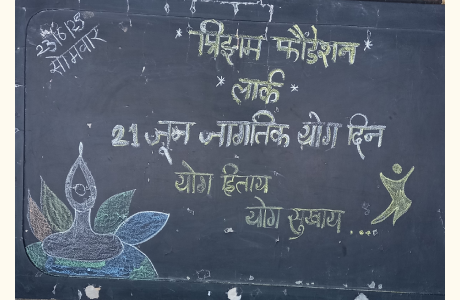 23/6/25
सोमवार
* प्रिझम फौंडेशन *
* लार्क *
21 जून जागतिक योग दिन
योग हिताय
योग सुखाय....